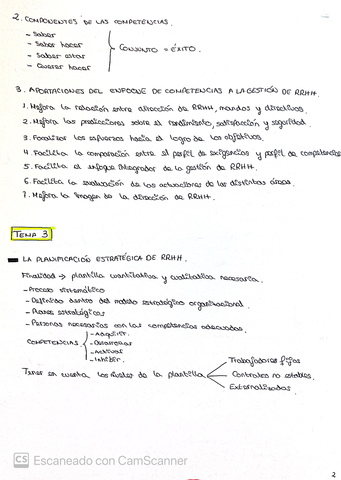 2. COMPONENTES DE LAS COMPETENCIAS.
- Saber
- Saber hacer
- Saber estar
- Querer hacer
CONJUNTO = ÉXITO.
3. APORTACIONES DEL ENFOQUE DE COMPETENCIAS A LA GESTIÓN DE RRHH.
1. Mejora la relación entre dirección de RRHH, mandos y directivos.
2. Mejora las predicciones sobre el rendimiento, satisfacción y seguridad.
3. Focalizar los esfuerzos hacia el logro de los objetivos.
4. Facilita la comparación entre el perfil de exigencias y perfil de competencias
5. Facilita el enfoque integrador de la gestión de RRHH.
6. Facilita la evaluación de las actuaciones de las distintas áreas.
7. Mejora la imagen de la dirección de RRHH.
TEMA 3
LA PLANIFICACIÓN ESTRATÉGICA DE RRHH.
Finalidad → plantilla cuantitativa y cualitativa necesaria.
- Proceso sistemático
- Definido dentro del modelo estratégico organizacional.
- Planes estratégicos
- Personas necesarias con las competencias adecuadas.
COMPETENCIAS
- Adquirir.
- Desarrollar
- Activar
- Inhibir.
Tener en cuenta los niveles de la plantilla
Trabajadores fijos
Contratos no estables.
Externalizados.
CS Escaneado con CamScanner
2